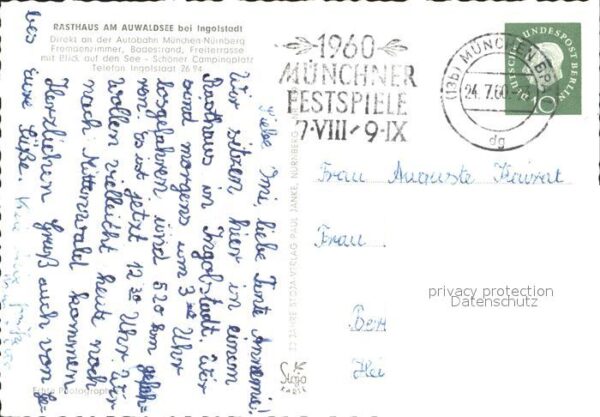 RASTHAUS AM AUWALDSEE bei Ingolstadt
Direkt an der Autobahn München-Nürnberg
Fremdenzimmer, Badestrand, Freiterrasse
mit Blick auf den See - Schöner Campingplatz
Telefon Ingolstadt 26 94
1960
MÜNCHNER
FESTSPIELE
7·VIII-9·IX
(13b) MÜNCHEN BP
24.7.60
dg
DEUTSCHE BUNDESPOST BERLIN
10
Liebe Omi, liebe Tante Annemie!
Wir sitzen hier in einem
Rasthaus in Ingolstadt. Wir
sind morgens um 3 Uhr
losgefahren und 520 km gefah-
ren. Es ist jetzt 12 30 Uhr. Wir
wollen vielleicht heute noch
nach Mittenwald kommen.
Herzlichen Gruß auch von
Eure Süße.
Frau Auguste
Frau
privacy protection
Datenschutz
STOJA-VERLAG PAUL JANKE, NÜRNBERG
Stoja
Echte Photographie